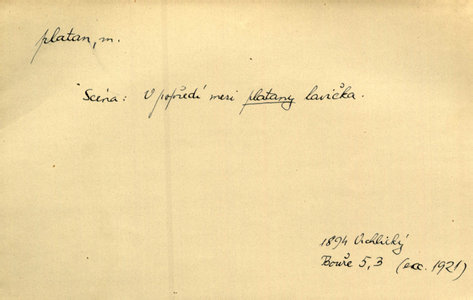 platan, m.
Scéna: V popředí mezi platany lavička.
1894 Vrchlický
Bouře 5,3 (exc. 1921)